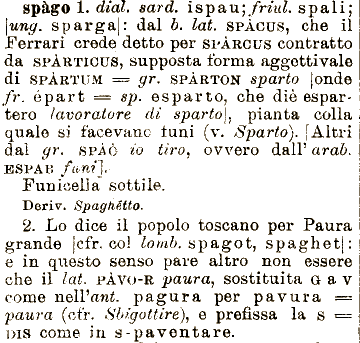 spàgo 1. dial. sard. ispau; friul. spali;
[ung. sparga]: dal b. lat. SPÀCUS, che il
Ferrari crede detto per SPÀRCUS contratto
da SPÀRTICUS, supposta forma aggettivale
di SPÀRTUM = gr. SPÀRTON sparto [onde
fr. épart = sp. esparto, che diè espar-
tero lavoratore di sparto], pianta colla
quale si facevano funi (v. Sparto). [Altri
dal gr. SPAÔ io tiro, ovvero dall'arab.
ESPAB funi].
Funicella sottile.
Deriv. Spaghétto.
2. Lo dice il popolo toscano per Paura
grande [cfr. col lomb. spagot, spaghet]:
e in questo senso pare altro non essere
che il lat. PÀVO-R paura, sostituita G a V
come nell'ant. pagura per pavura =
paura (cfr. Sbigottire), e prefissa la S =
DIS come in s-paventare.